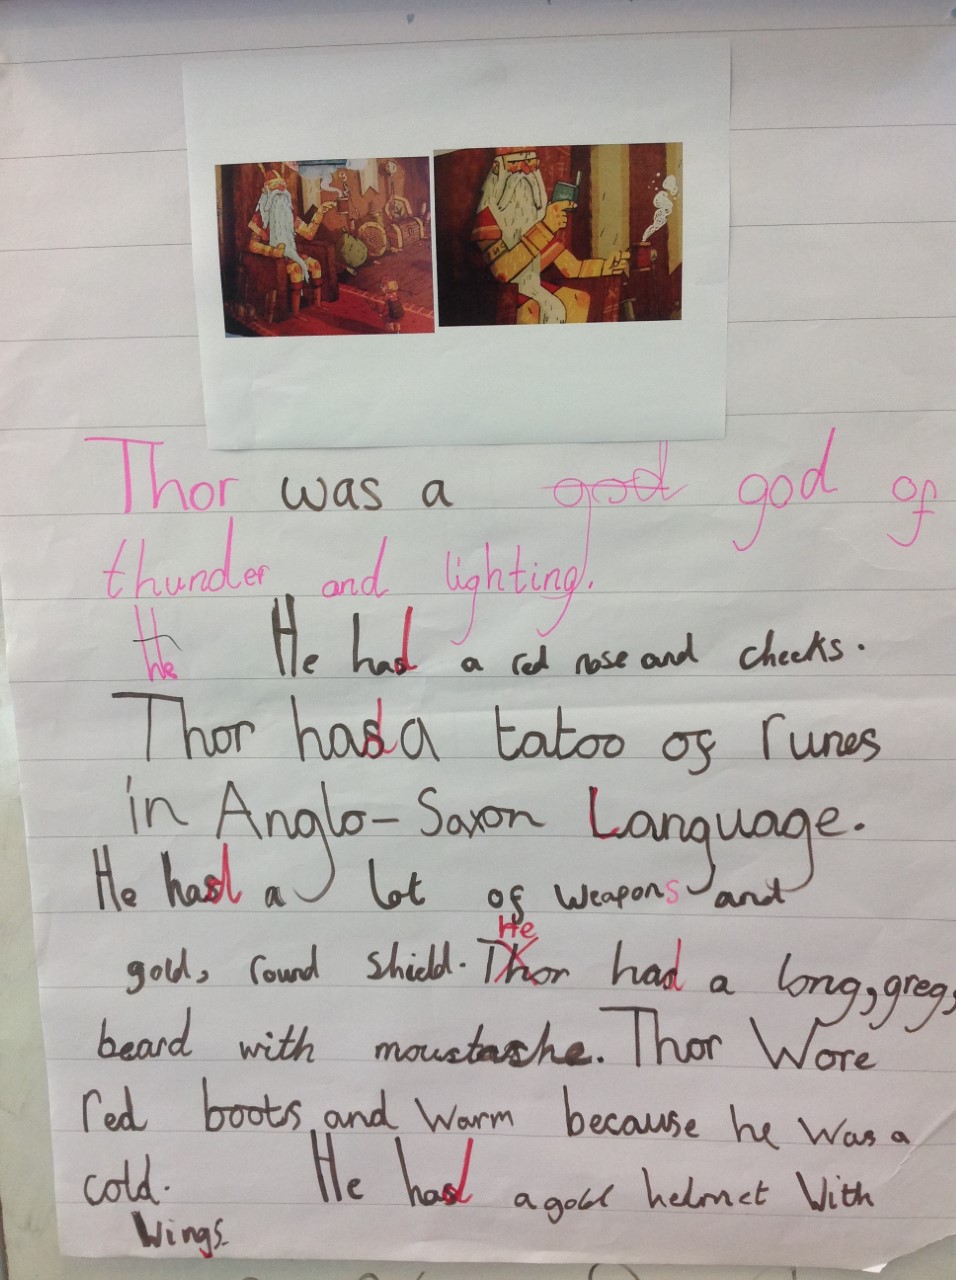 Thor was a god god of
thunder and lighting.
He He had a red nose and cheeks.
Thor had a tatoo of runes
in Anglo-Saxon Language.
He had a lot of weapons and
gold, round shield. Thor He had a long, grey,
beard with moustashe. Thor Wore
red boots and warm because he was a
cold. He had a gold helmet With
Wings.